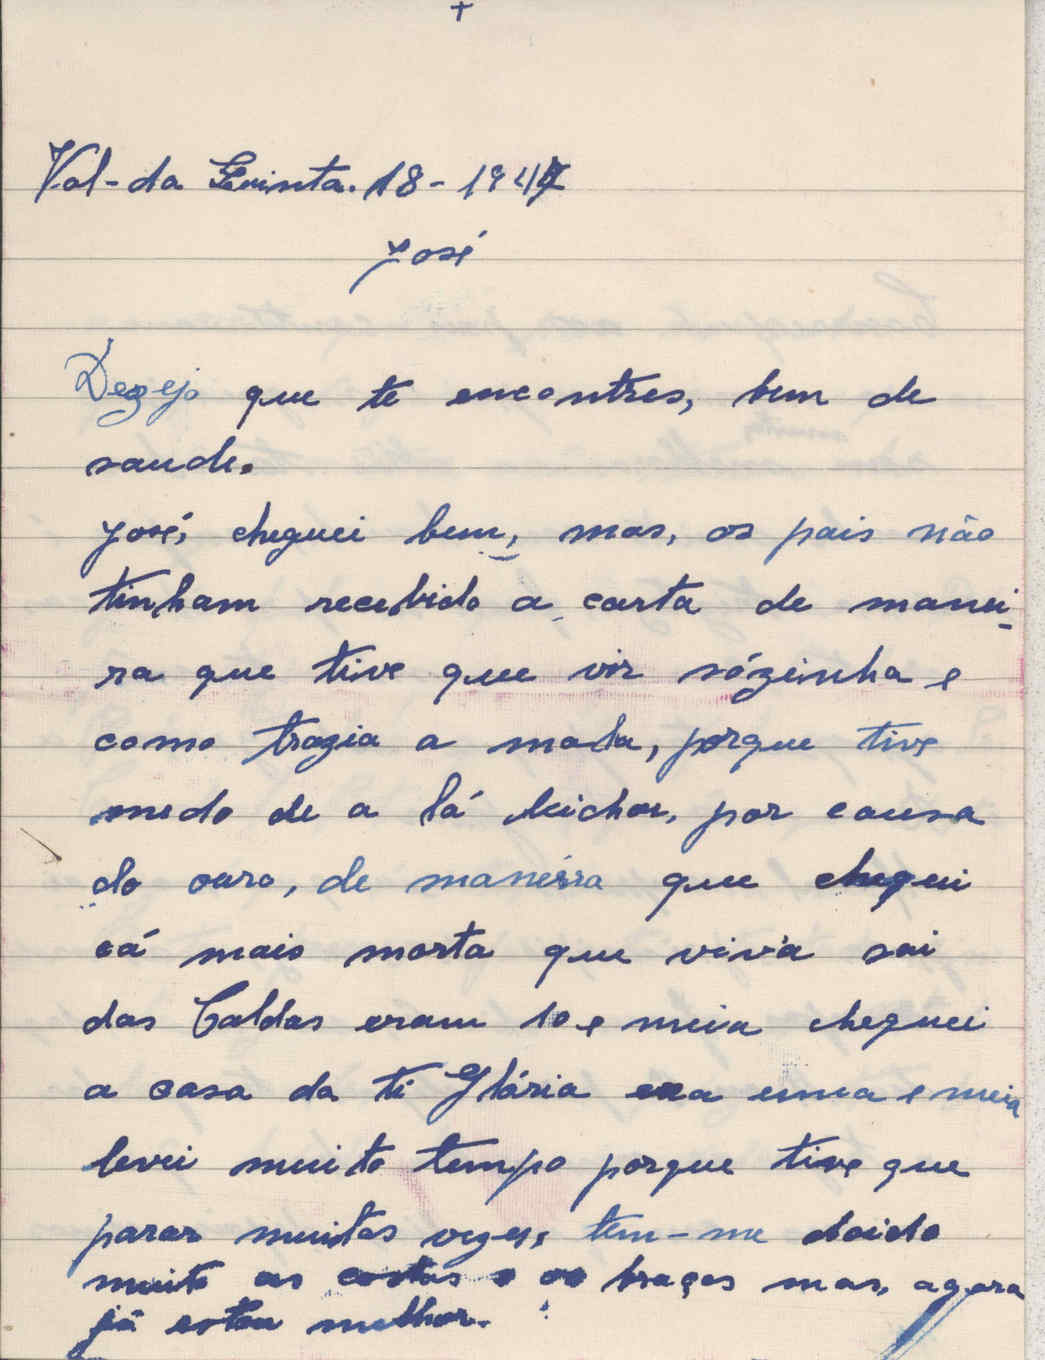 +
Val-da Quinta. 18-1947
José
Dezejo que te encontres, bem de
saude.
José, cheguei bem, mas, os pais não
tinham recebido a carta de manei-
ra que tive que vir sózinha e
como trazia a mala, porque tive
medo de a lá deichar, por causa
do ouro, de maneira que cheguei
cá mais morta que viva sai
das Caldas eram 10 e meia cheguei
a casa da ti Glória era uma e meia
levei muito tempo porque tive que
parar muitas vezes, tem-me doido
muito as costas e os braços mas, agora
já estou melhor.